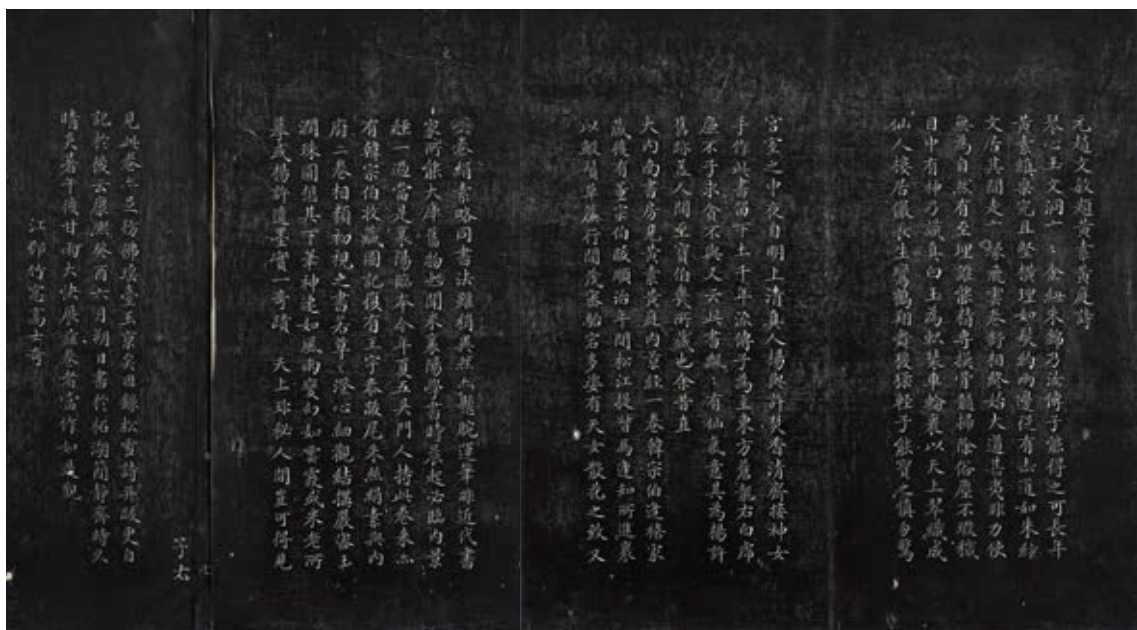 元趙文敏題黃素黃庭詩
琴心玉文洞一 金鈕朱錦乃汝傳子能得之可長年
黃素縝栗完且堅橫理如髮約兩邊從有赤道如朱絲
文居其間走一蠶飛雲卷舒相終始大道甚夷非力使
無為自然有至理誰能精專換骨髓掃除俗塵不瑕穢
目中有神乃識真白玉為軸裝車輪襲以天上翠織成
仙人樓居儼長生鸞鶴翔舞猨猱輕子能寶之慎勿驚
宮室之中夜自明上清真人楊與許焚香清齋接神女
手作此書留下土千年流傳子為主東方蒼龍右白虎
塵不手永會不與又云此書飄飄有仙氣意其為楊許
舊跡蓋人間至寶伯幾所藏也余昔直
大內南書房見黃素黃庭內景經一卷韓宗伯逢禧家
藏後有董宗伯跋順治年間松江提督馬逢知所進摹
以 行間茂密 宕多姿有天女散花之致又
此卷絹素略同書法雖稍異然 超脫運筆非近代書
家所能大庫舊物也聞米襄陽學書時每 必臨內景
經一過當是襄陽臨本今年夏五天門人持此卷來亦
有韓宗伯收藏圖記復有王宇泰跋尾矣然絹素與內
府二卷相類初視之書若草草澄心細觀結構嚴密玉
潤珠圓想其下筆神速如風雨變幻如雲霞或朱 所
摹或楊許遺墨實一奇蹟 天上珎秘人間豈可得見
見此卷亦 臺 矣因錄松雪詩并跋更自
記於後云康熙癸酉六月朔日書於柘湖簡靜齋時久
晴炎暑午後甘雨大快展 卷者當作如是觀
江邨竹窗高士奇